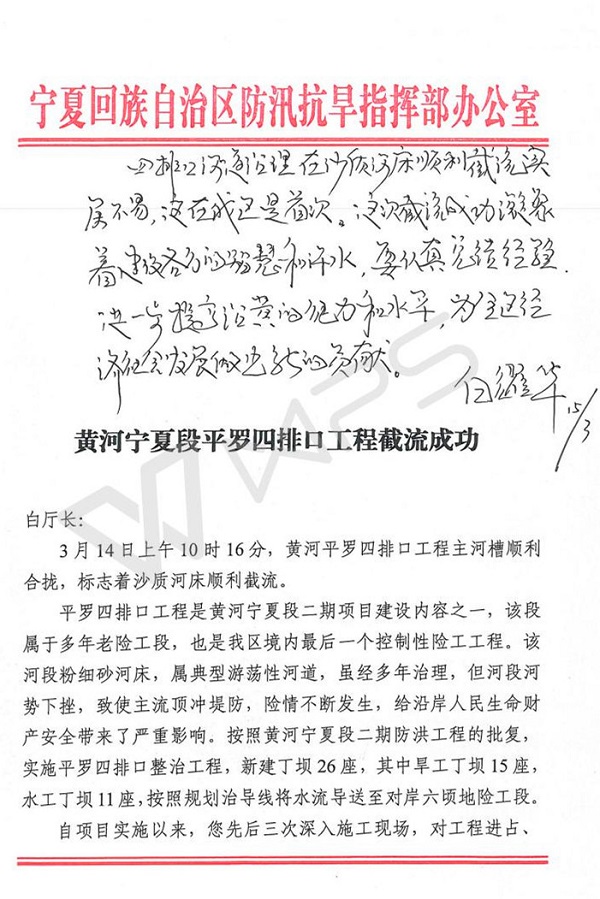 宁夏回族自治区防汛抗旱指挥部办公室
四排口河道治理在沙质河床顺利截流实
属不易,这在我区是首次。这次截流成功凝聚
着建设各方的智慧和汗水,要认真总结经验,
进一步提高治黄的能力和水平,为全区经
济社会发展做出新的贡献。
白耀华 15/3
黄河宁夏段平罗四排口工程截流成功
白厅长:
3月14日上午10时16分,黄河平罗四排口工程主河槽顺利
合拢,标志着沙质河床顺利截流。
平罗四排口工程是黄河宁夏段二期项目建设内容之一,该段
属于多年老险工段,也是我区境内最后一个控制性险工工程。该
河段粉细砂河床,属典型游荡性河道,虽经多年治理,但河段河
势下挫,致使主流顶冲堤防,险情不断发生,给沿岸人民生命财
产安全带来了严重影响。按照黄河宁夏段二期防洪工程的批复,
实施平罗四排口整治工程,新建丁坝26座,其中旱工丁坝15座,
水工丁坝11座,按照规划治导线将水流导送至对岸六顷地险工段。
自项目实施以来,您先后三次深入施工现场,对工程进占、
WPS